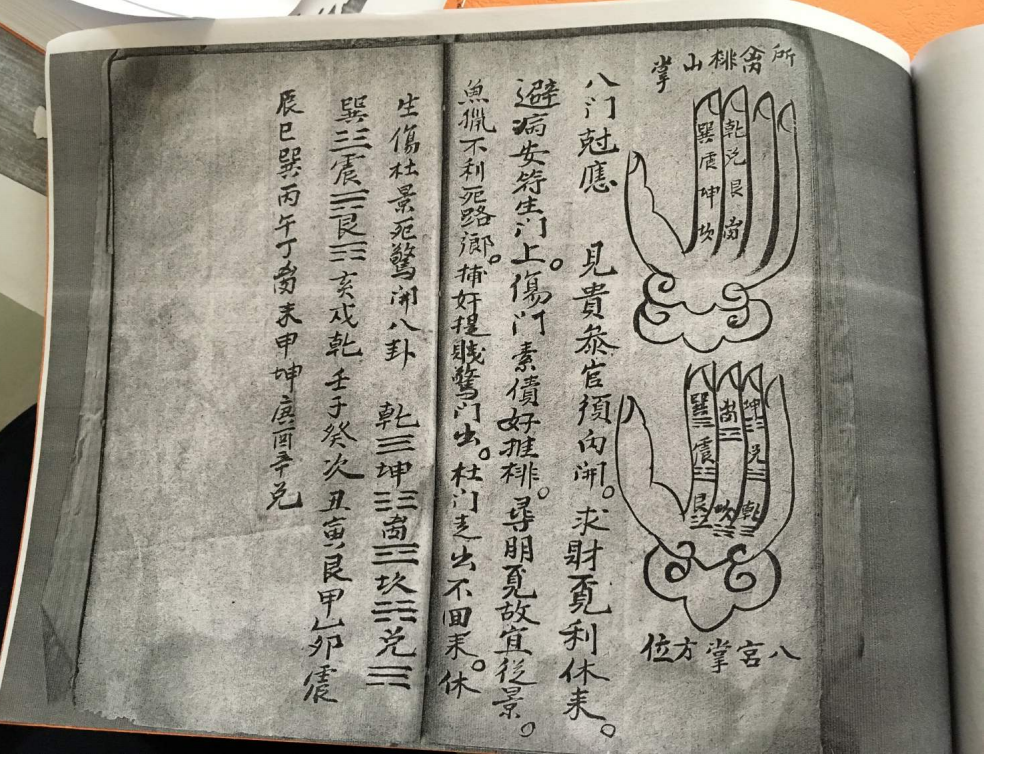 所禽桃山掌
乾兌艮离
巽震坤坎
坤☷兌☱乾☰
离☲坎☵
巽☴震☳艮☶
八宮掌方位
八门尅應 見貴叅官須向開。求財覔利休来。
避病安符生门上。傷门素債好推排。尋朋覔故宜從景。
魚獵不利死路鄉。捕奸捉賊驚门出。杜门走出不回来。休
生傷杜景死驚開八卦 乾☰坤☷离☲坎☵兌☱
巽☴震☳艮☶亥戌乾壬子癸次丑寅艮甲乙卯震
辰巳巽丙午丁离未申坤庚酉辛兌